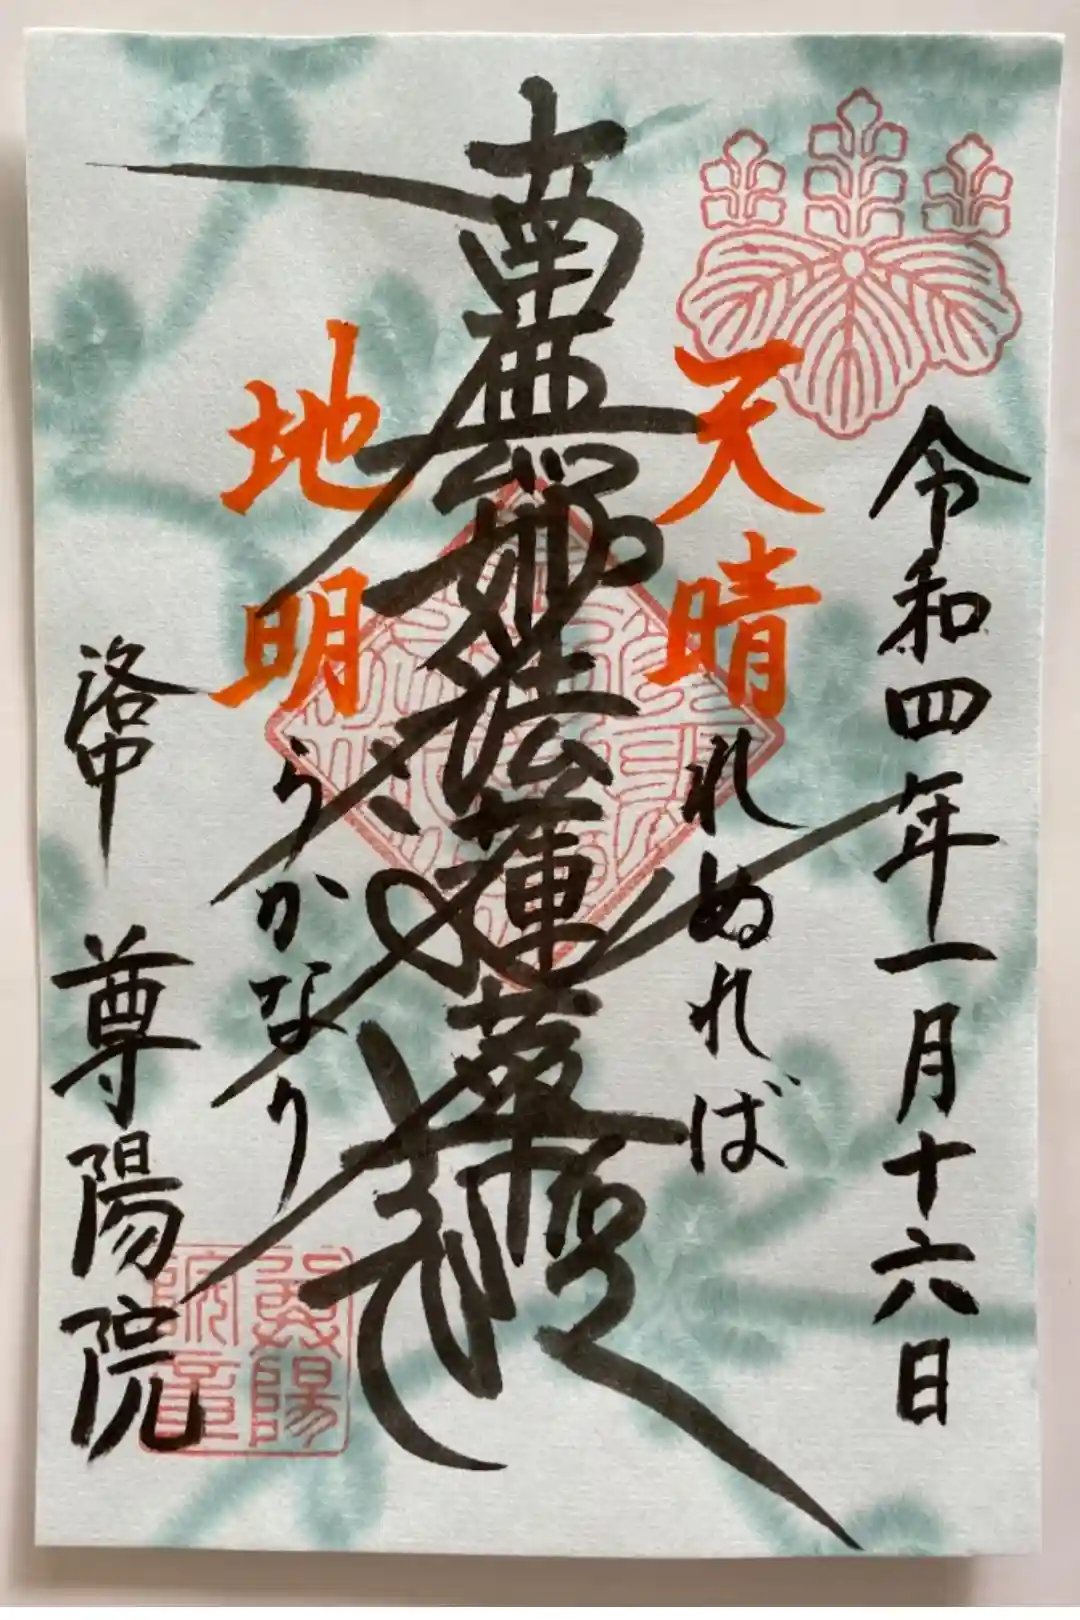 令和四年一月十六日
天晴れぬれば
南無妙法蓮華経
地明らかなり
洛中 尊陽院
尊陽院章